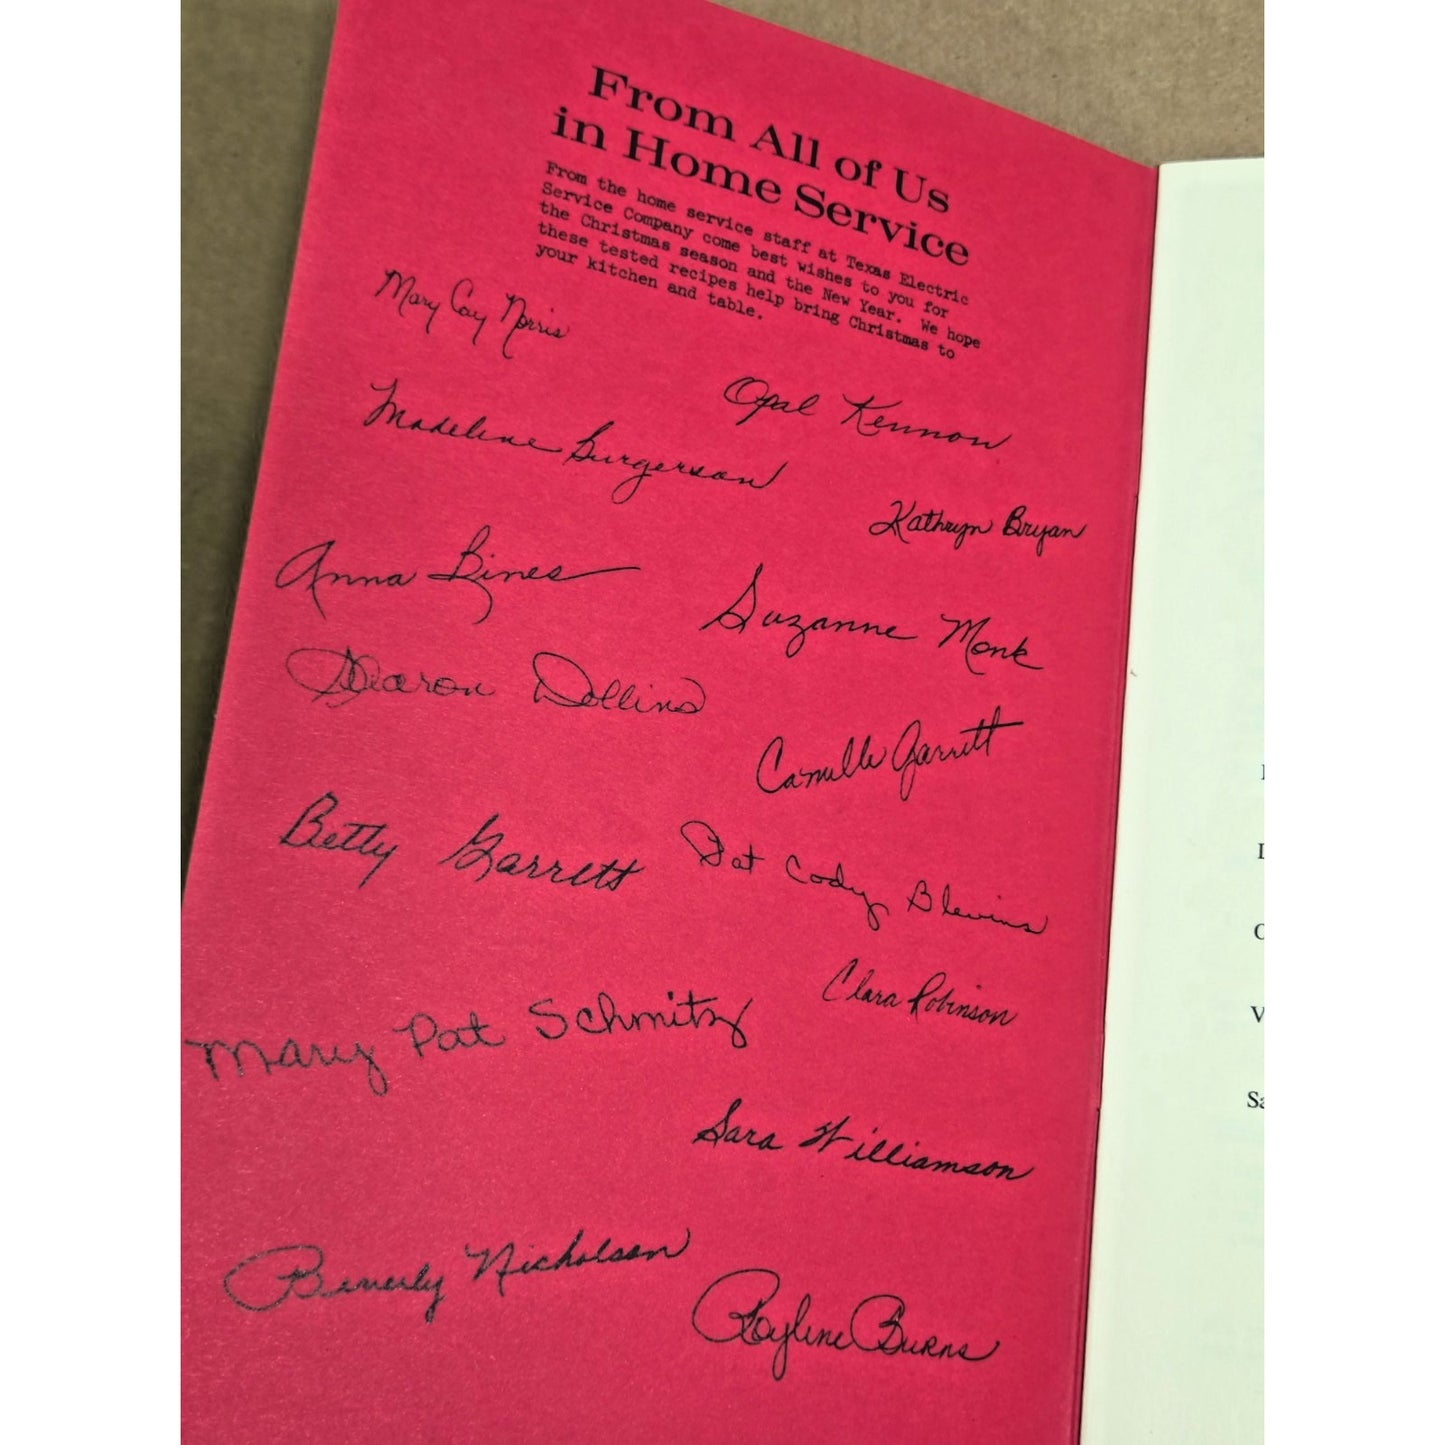 From All of Us
in Home Service
From the home service staff at Texas Electric
Service Company come best wishes to you for
the Christmas season and the New Year.  We hope
these tested recipes help bring Christmas to
your kitchen and table.
Mary Cay Norris
Opal Kennon
Madeline Gurgerson
Kathryn Bryan
Anna Bines
Suzanne Monk
Sharon Dollins
Camille Garrett
Betty Garrett
Pat Cody Blevins
Clara Robinson
Mary Pat Schmitz
Sara Williamson
Beverly Nicholson
Royline Burns
V
Sa